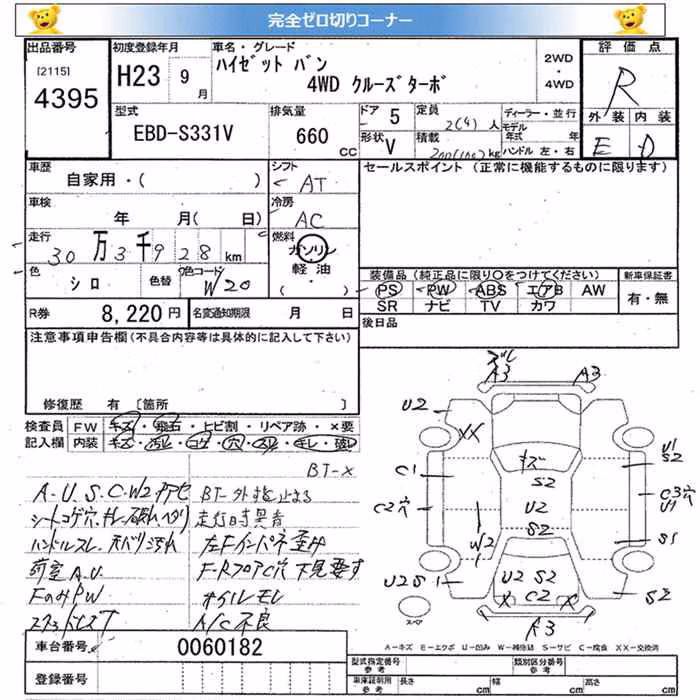 完全ゼロ切りコーナー
出品番号
[2115]
4395
初度登録年月
H23 9月
車名・グレード
ハイゼット バン
4WD クルーズターボ
2WD
・
4WD
評価点
R
外装 内装
E D
型式
EBD-S331V
排気量
660 CC
ドア 5
形状 V
定員 2(4)人
積載 kg
ディーラー・並行
モデル年式 年
ハンドル 左・右
車歴
自家用・( )
シフト
AT
セールスポイント (正常に機能するものに限ります)
車検
年 月( 日)
冷房
AC
走行
30万3千928km
燃料
ガソリン
軽油
( )
色
シロ
色替
カラーコード
W20
装備品(純正品に限り○をつけてください)
PS PW ABS エアB AW
SR ナビ TV カワ
新車保証書
有・無
R券 8,220円
名変通知期限 月 日
後日品
注意事項申告欄(不具合内容等は具体的に記入して下さい)
修復歴 有 [箇所 ]
検査員記入欄
FW キズ・飛石・ヒビ割・リペア跡・×要
内装 キズ・汚れ・コゲ・穴・スレ・キレ・破レ
BT-×
A.U.S.C.W2
BT-外
シートコゲ穴
走行時異音
ハンドルスレ 天バリ汚れ
左Fインパネ歪み
荷室A.U
F-RフロアC穴 下見要す
FのみPW
オイルモレ
A/C不良
車台番号 0060182
登録番号
ズレ
A3 A3
U2
XX
キズ
S2
U1
S2
C1
C2穴
U2
C3穴
U1
S2
W2
S1
U2 S1
U2 S2
C2
X X
S2
A3
スペア
A−キズ E−エクボ U−凹み W−補修跡 S−サビ C−腐食 XX−交換済
型式指定番号
参考
類別区分番号
参考
車庫証明用
参考
長さ cm
幅 cm
高さ cm